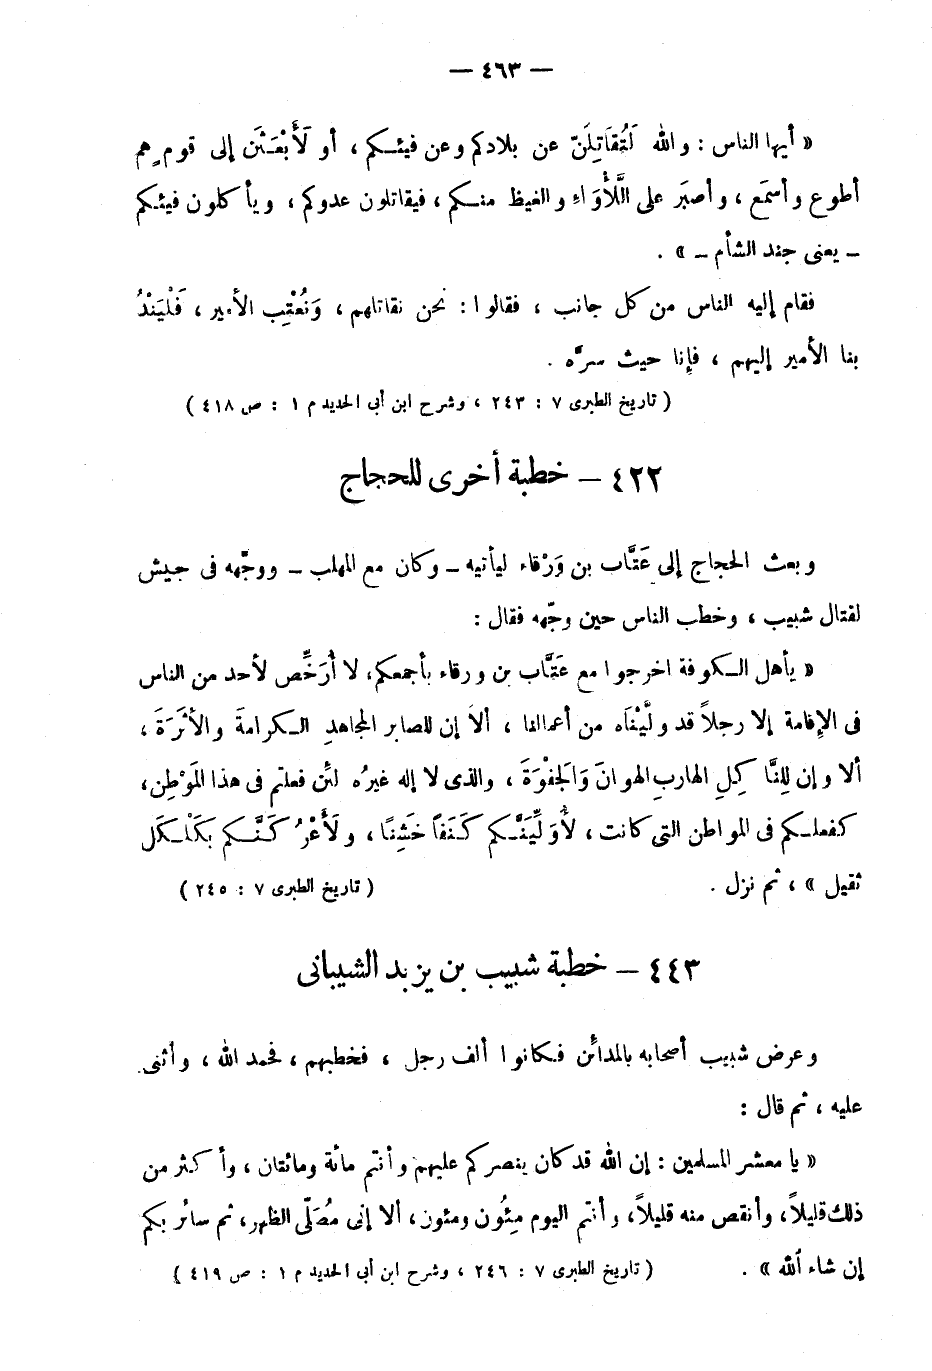 — ٤٦٣ —
« أيها الناس : والله لَتُقَاتِلُنّ عن بلادكم وعن فيئكم ، أو لَأَبْعَثَن إلى قوم هم
أطوع وأسمَع ، وأصبَر على اللَّأْوَاءِ والغيظ منكم ، فيقاتلون عدوكم ، ويأكلون فيئكم
– يعنى جند الشأم – » .
فقام إليه الناس من كل جانب ، فقالوا : نحن نقاتلهم ، وَنُعْتِب الأمير ، فَلْيَنْدُ
بنا الأمير إليهم ، فإنا حيث سرَّه .
( تاريخ الطبرى ٧ : ٢٤٣ ، وشرح ابن أبى الحديد م ١ : ص ٤١٨ )
٤٢٢ – خطبة أخرى للحجاج
وبعث الحجاج إلى عَتَّاب بن وَرْقاء ليأتيه – وكان مع المهلب – ووجّهه فى جيش
لقتال شبيب ، وخطب الناس حين وجّهه فقال :
« يأهل الكوفة اخرجوا مع عَتَّاب بن ورقاء بأجمعكم، لا أُرَخِّص لأحد من الناس
فى الإقامة إلا رجلاً قد ولَّيْنَاه من أعمالنا ، ألاَ إن للصابر المجاهدِ الكرامةَ والأَثَرَةَ ،
ألا وإن لِلنَّا كِلِ الهاربِ الهوانَ وَالجَفْوَةَ ، والذى لا إله غيرُه لئن فعلتم فى هذا المَوْطِن،
كفعلكم فى المواطن التى كانت ، لأُوَلِّيَنَّكم كَنَفاً خَشِنًا ، ولَأَعْرُ كَنَّكم بِكَلْكَل
ثقيل » ، ثم نزل .
( تاريخ الطبرى ٧ : ٢٤٥ )
٤٤٣ – خطبة شبيب بن يزيد الشيبانى
وعرض شبيب أصحابه بالمدائن فكانوا ألف رجل ، فخطبهم ، فحمد الله ، وأثنى
عليه ، ثم قال :
« يا معشر المسلمين : إن الله قد كان ينصركم عليهم وأنتم مائة ومائتان ، وأكثر من
ذلك قليلاً، وأنقص منه قليلاً، وأنتم اليوم مِئُون ومئون، ألا إنى مُصَلّى الظهر، ثم سائر بكم
إن شاء الله » .
( تاريخ الطبرى ٧ : ٢٤٦ ، وشرح ابن أبى الحديد م ١ : ص ٤١٩ )